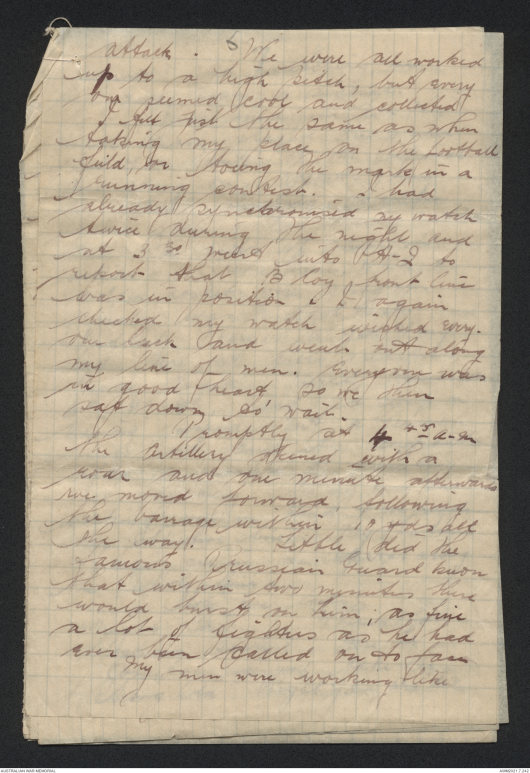 5
attack. We were all worked
up to a high pitch, but every
one seemed cool and collected
I felt just the same as when
taking my place on the football
field, or toeing the mark in a
running contest. I had
already synchronised my watch
twice during the night and
at 3 30 went into H-Q to
report that B Coy front line
was in position & to again
checked my watch wished every-
one luck and went out along
my line of men. Everyone was
in good heart so we then
sat down to wait.
Promptly at 4 a-m
the artillery opened with a
roar and one minute afterwards
we moved forward, following
the barrage within 10 yds all
the way. Little did the
famous Prussian Guard know
that within two minutes there
would burst on him, as fine
a lot of fighters as he had
ever been called on to face
My men were working like
AUSTRALIAN WAR MEMORIAL